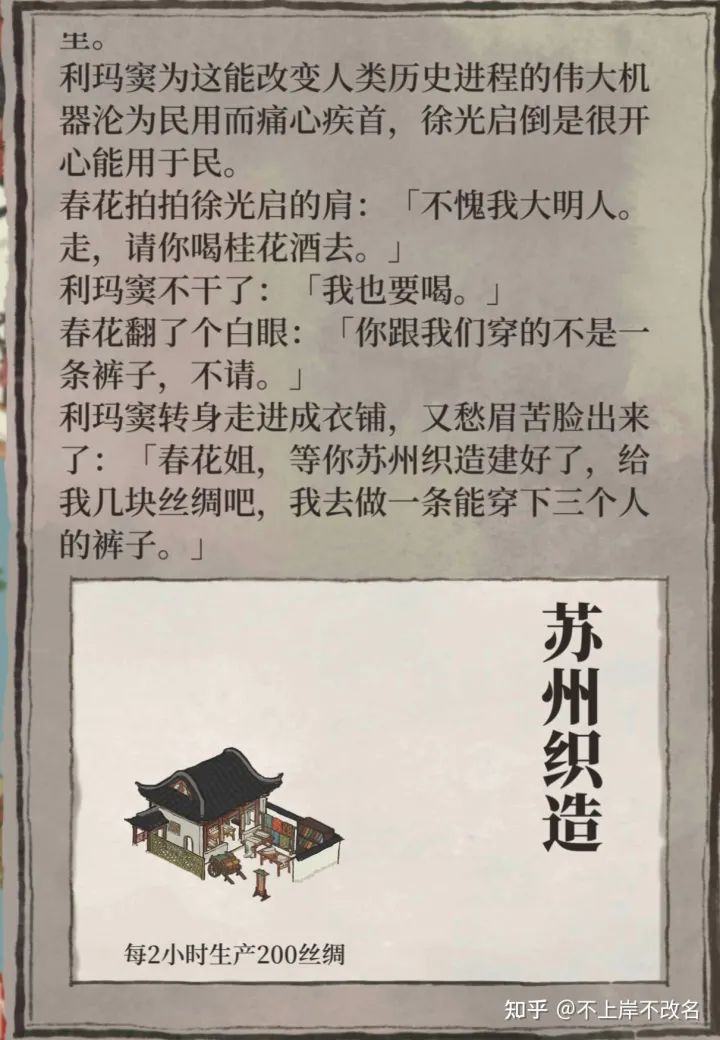 里。
利玛窦为这能改变人类历史进程的伟大机
器沦为民用而痛心疾首，徐光启倒是很开
心能用于民。
春花拍拍徐光启的肩：「不愧我大明人。
走，请你喝桂花酒去。」
利玛窦不干了：「我也要喝。」
春花翻了个白眼：「你跟我们穿的不是一
条裤子，不请。」
利玛窦转身走进成衣铺，又愁眉苦脸出来
了：「春花姐，等你苏州织造建好了，给
我几块丝绸吧，我去做一条能穿下三个人
的裤子。」
苏州织造
每2小时生产200丝绸
知乎 @不上岸不改名